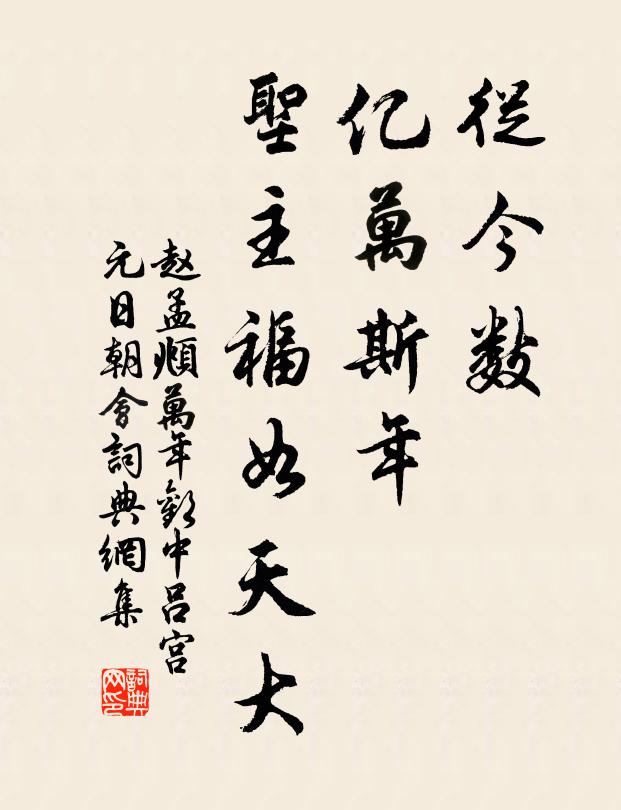 從今數
亿萬斯年
聖主福如天大
赵孟頫萬年歡中吕宫
元日朝會詞典網集
詞典网印